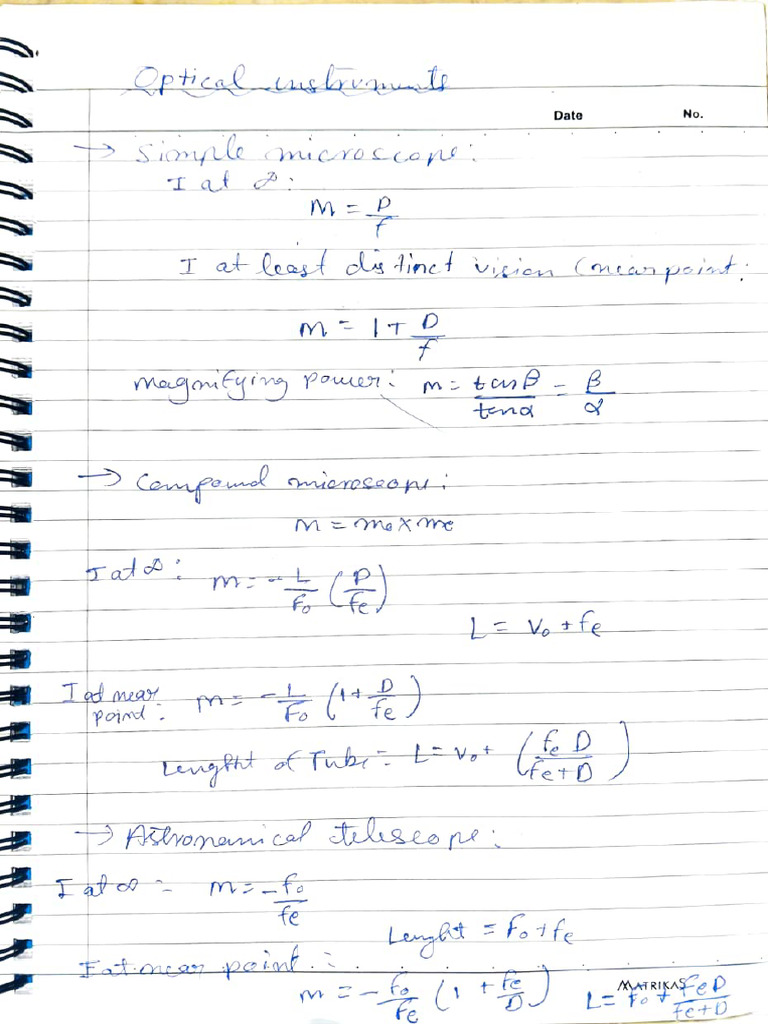 Optical instruments
Date No.
→ Simple microscope:
I at ∞:
M = D/f
I at least distinct vision (near point:
m = 1 + D/f
Magnifying power: m = tanβ/tanα = β/α
→ Compound microscope:
m = mo x me
I at ∞: m = -L/Fo (D/fe)
L = Vo + fe
I at near point: m = -L/Fo (1 + D/fe)
Lenght of Tube = L = Vo + (fe D/fe + D)
→ Astronomical telescope:
I at ∞ = m = -fo/fe
Lenght = Fo + fe
I at near point:
m = -fo/fe (1 + fe/D) L = Fo + feD/fe+D
MATRIKAS